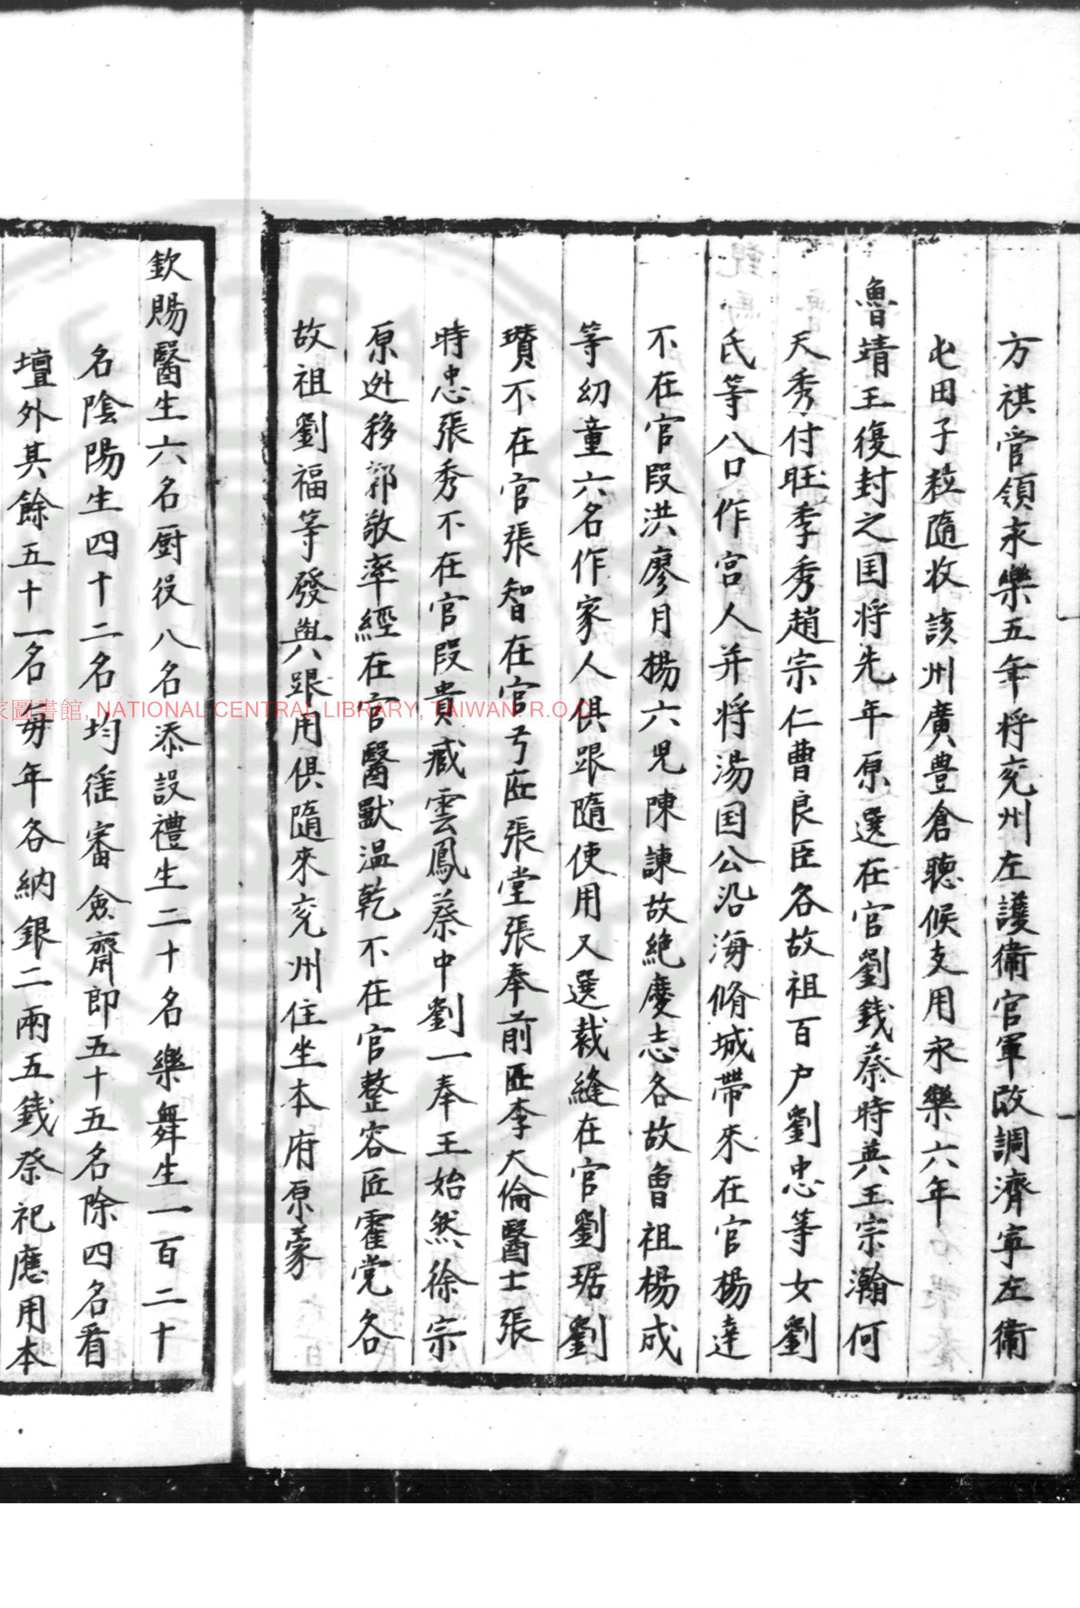 方祺管領永樂五年将兖州左護衛官軍改調濟寕左衛
屯田子粒隨收該州廣豊倉聴候支用永樂六年
魯靖王復封之国将先年原選在官劉錢蔡時英王宗瀚何
天秀付旺季秀趙宗仁曹良臣各故祖百户劉忠等女劉
氏等八口作宫人并将湯国公沿海脩城帶來在官楊達
不在官段洪廖月楊六児陳諌故絶慶志各故曾祖楊成
等幼童六名作家人俱跟隨使用又選裁縫在官劉琚劉
瓚不在官張智在官弓匠張堂張奉前匠李大倫醫士張
時忠張秀不在官段貴臧雲鳳蔡中劉一奉王始然徐宗
原迯移郭敬率經在官醫獸温乾不在官整容匠霍党各
故祖劉福等發與跟用俱隨來兖州住坐本府原蒙
欽賜醫生六名厨役八名添設禮生二十名樂舞生一百二十
名陰陽生四十二名均徭審僉齋郎五十五名除四名看
壇外其餘五十一名毎年各納銀二兩五錢祭祀應用本
家圖書館, NATIONAL CENTRAL LIBRARY, TAIWAN. R.O.C.